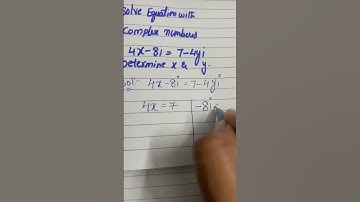 solve Equation with
complex numbers
4x-8i = 7-4yi
Determine x & y.
Sol: 4x-8i = 7-4yi
4x = 7 | -8i =